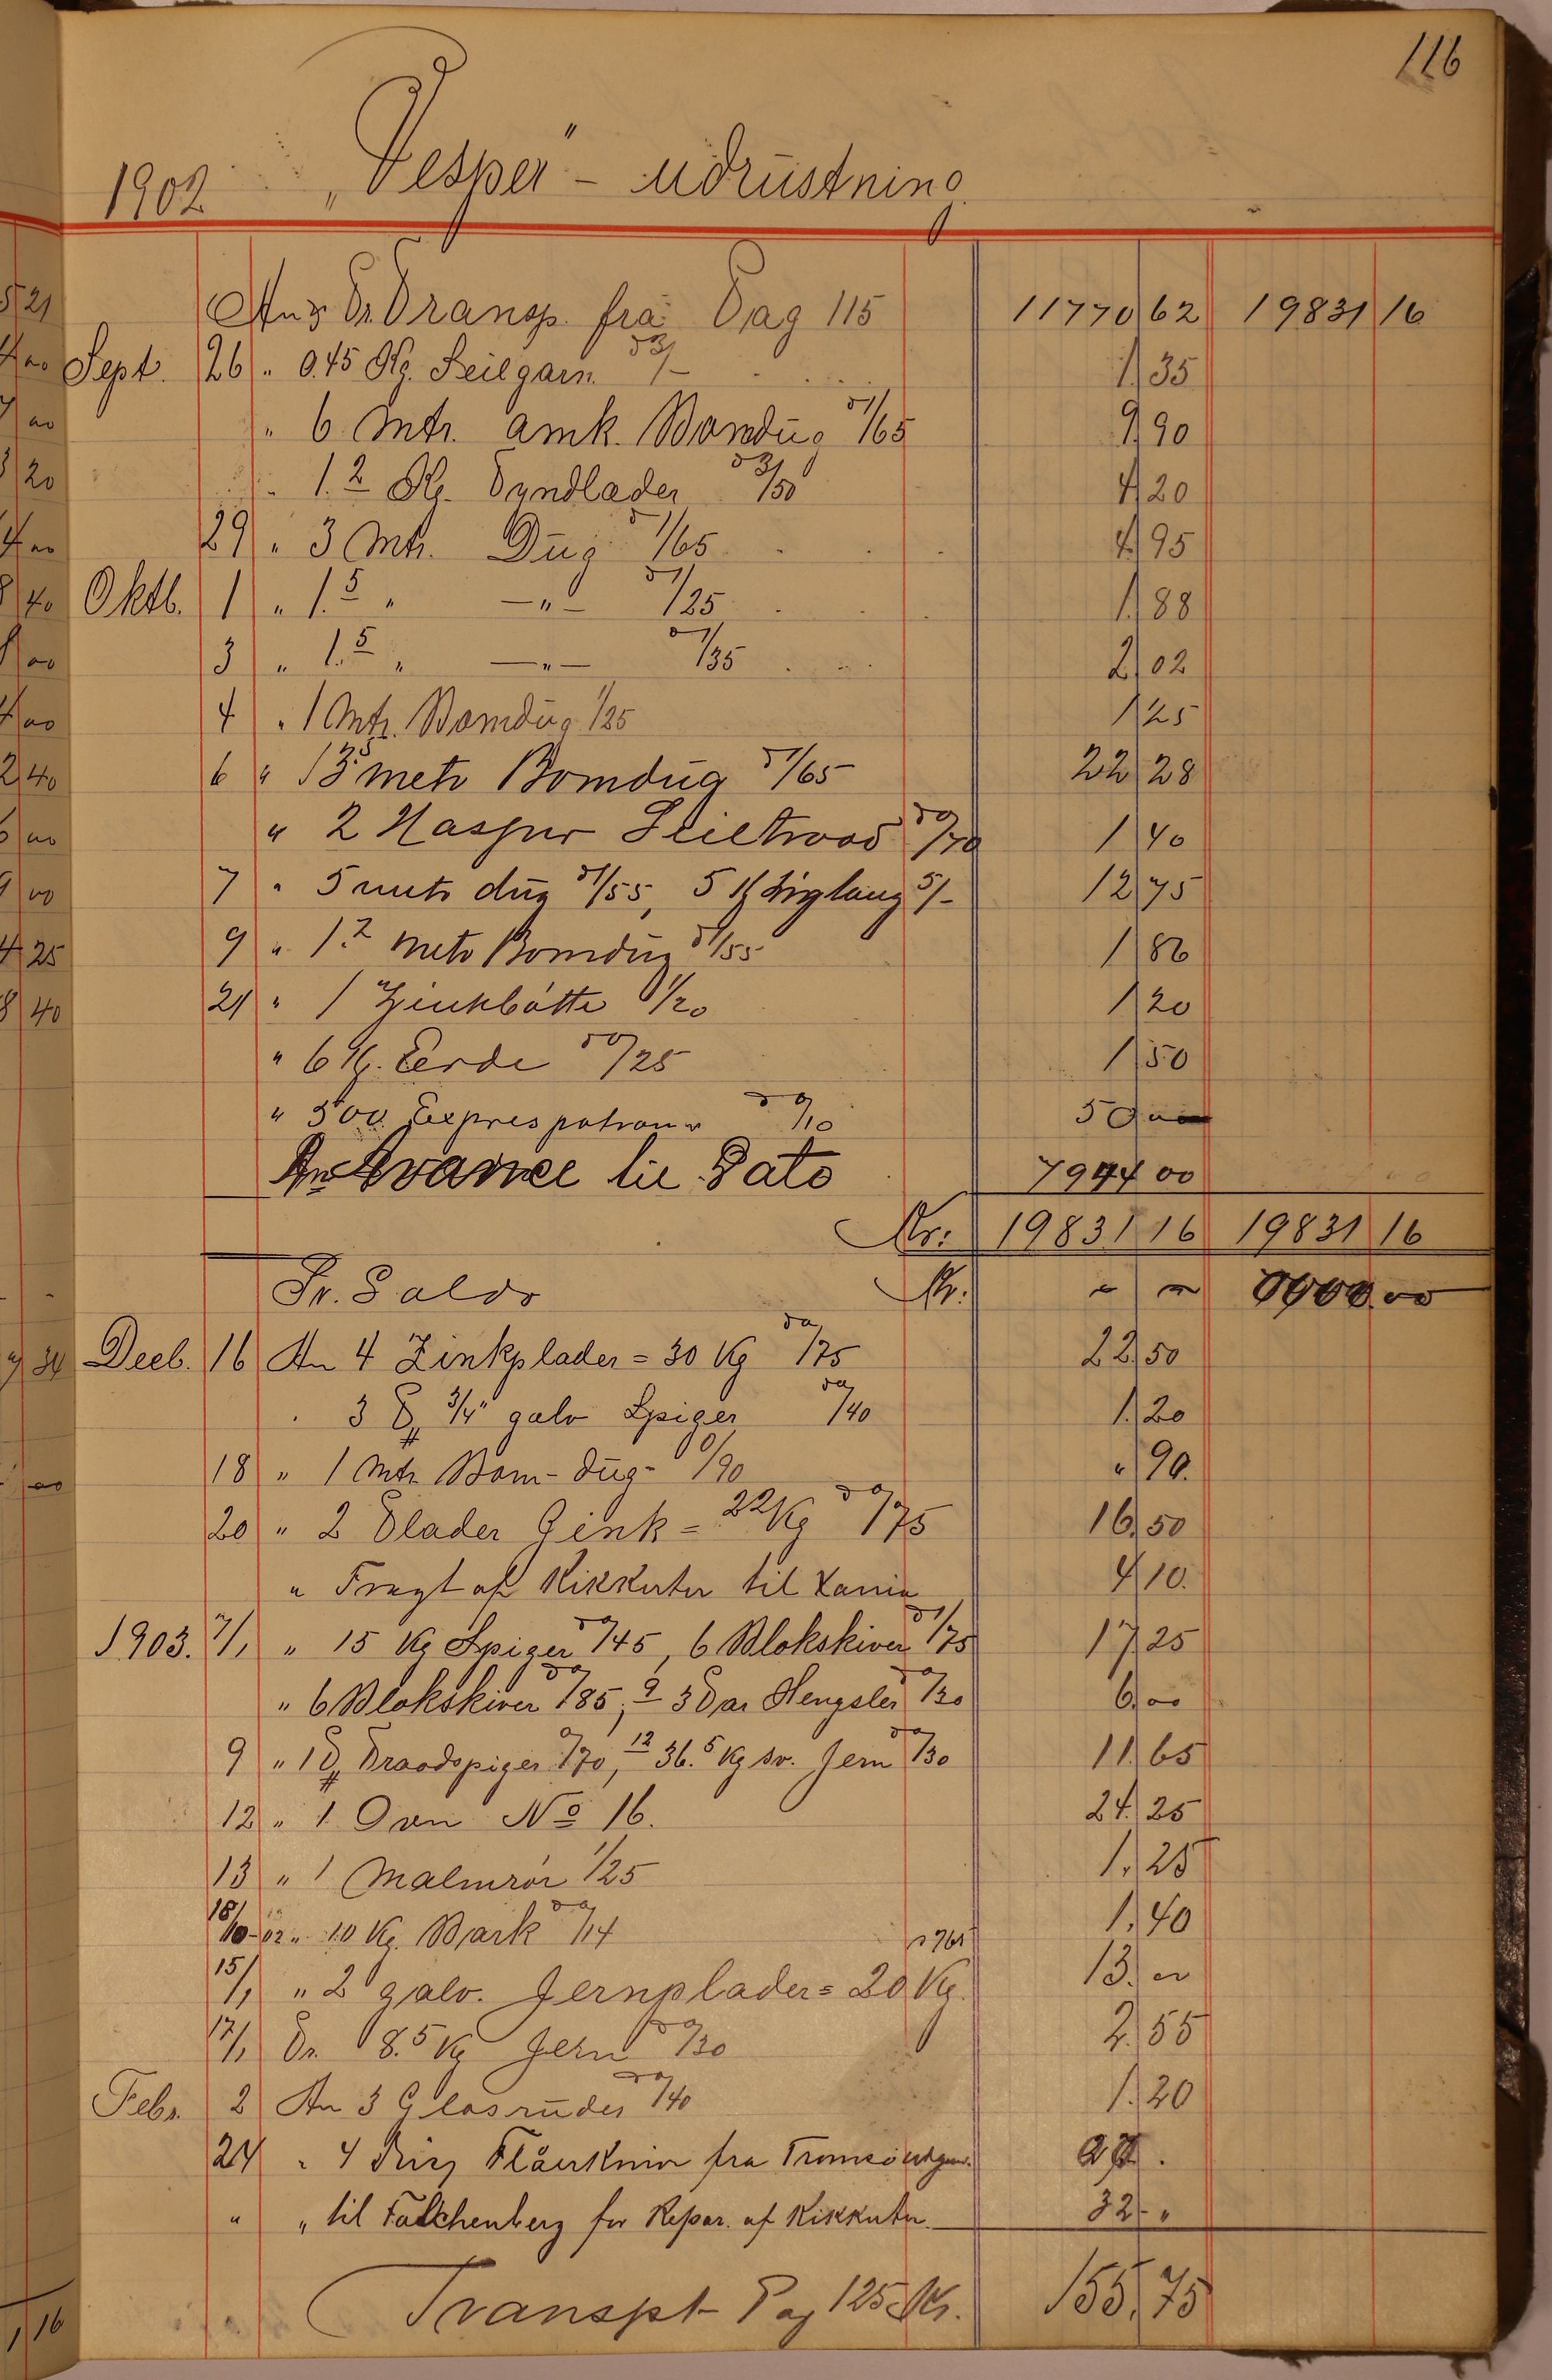 116
1902 "Vesper" - udrüstning
An & Pr. Transp. fra Pag 115 11770 62 19831 16
Sept. 26 " 0.45 Kg. Seilgarn à 3/- 1. 35
" 6 Mtr. amk. Bomdüg à 1/65 9. 90
" 1.2 Kg. Pyndlæder à 3/50 4. 20
29 " 3 Mtr. Düg à 1/65 4. 95
Oktb. 1 " 1.5 " —"— à 1/25 1. 88
3 " 1.5 " —"— à 1/35 2. 02
4 " 1 Mtr. Bomdüg 1/25 1 25
6 " 13.5 metr Bomdüg à 1/65 22 28
" 2 Hasper Seiltraad à 0/70 1 40
7 " 5 metr düg à 1/55, 5 5/- 12 75
9 " 1.2 metr Bomdüg à 1/55 1 86
21 " 1 Zinkbøtte 1/20 1 20
" 6 K. à 0/25 1 50
" 500 Exprespatroner à 0/10 50 00
An Avance til Dato 7944 00
Kr: 19831 16 19831 16
Pr. Saldo Kr.
Decb. 16 An 4 Zinkplader = 30 Kg à 0/75 22. 50
" 3 3/4" galv Spiger à 0/40 1. 20
18 " 1 Mtr Bom-düg- 0/90 " 90.
20 " 2 Plader Zink = 22 Kg à 0/75 16. 50
" Fragt af Kikkerter til Xania 4 10.
1903. 7/1 " 15 Kg Spiger à 0/45, 6 Blokskiver à 1/75 17. 25
" 6 Blokskiver à 0/85, 9 3 Par Hengsler à 0/30 6. 00
9 " 1 Traadspiger 0/70, 12 36.5 Kg sv. Jern à 0/30 11. 65
12 " 1 Ovn No 16. 24. 25
13 " 1 Malmrør 1/25 1. 25
18/10-02 " 10 Kg. Bark à 0/14 1. 40
15/1 " 2 galv. Jernplader = 20 Kg. à 0/65 13. 00
17/1 Pr. 8.5 Kg Jern à 0/30 2. 55
Febr. 2 An 3 Glasrüder à 0/40 1. 20
24 " 4 Flåerkniver fra Tromsø
" " til Falchenberg for Repar. af Kikkerter. 32 - "
Transpt Pag 125 Kr. 155. 75